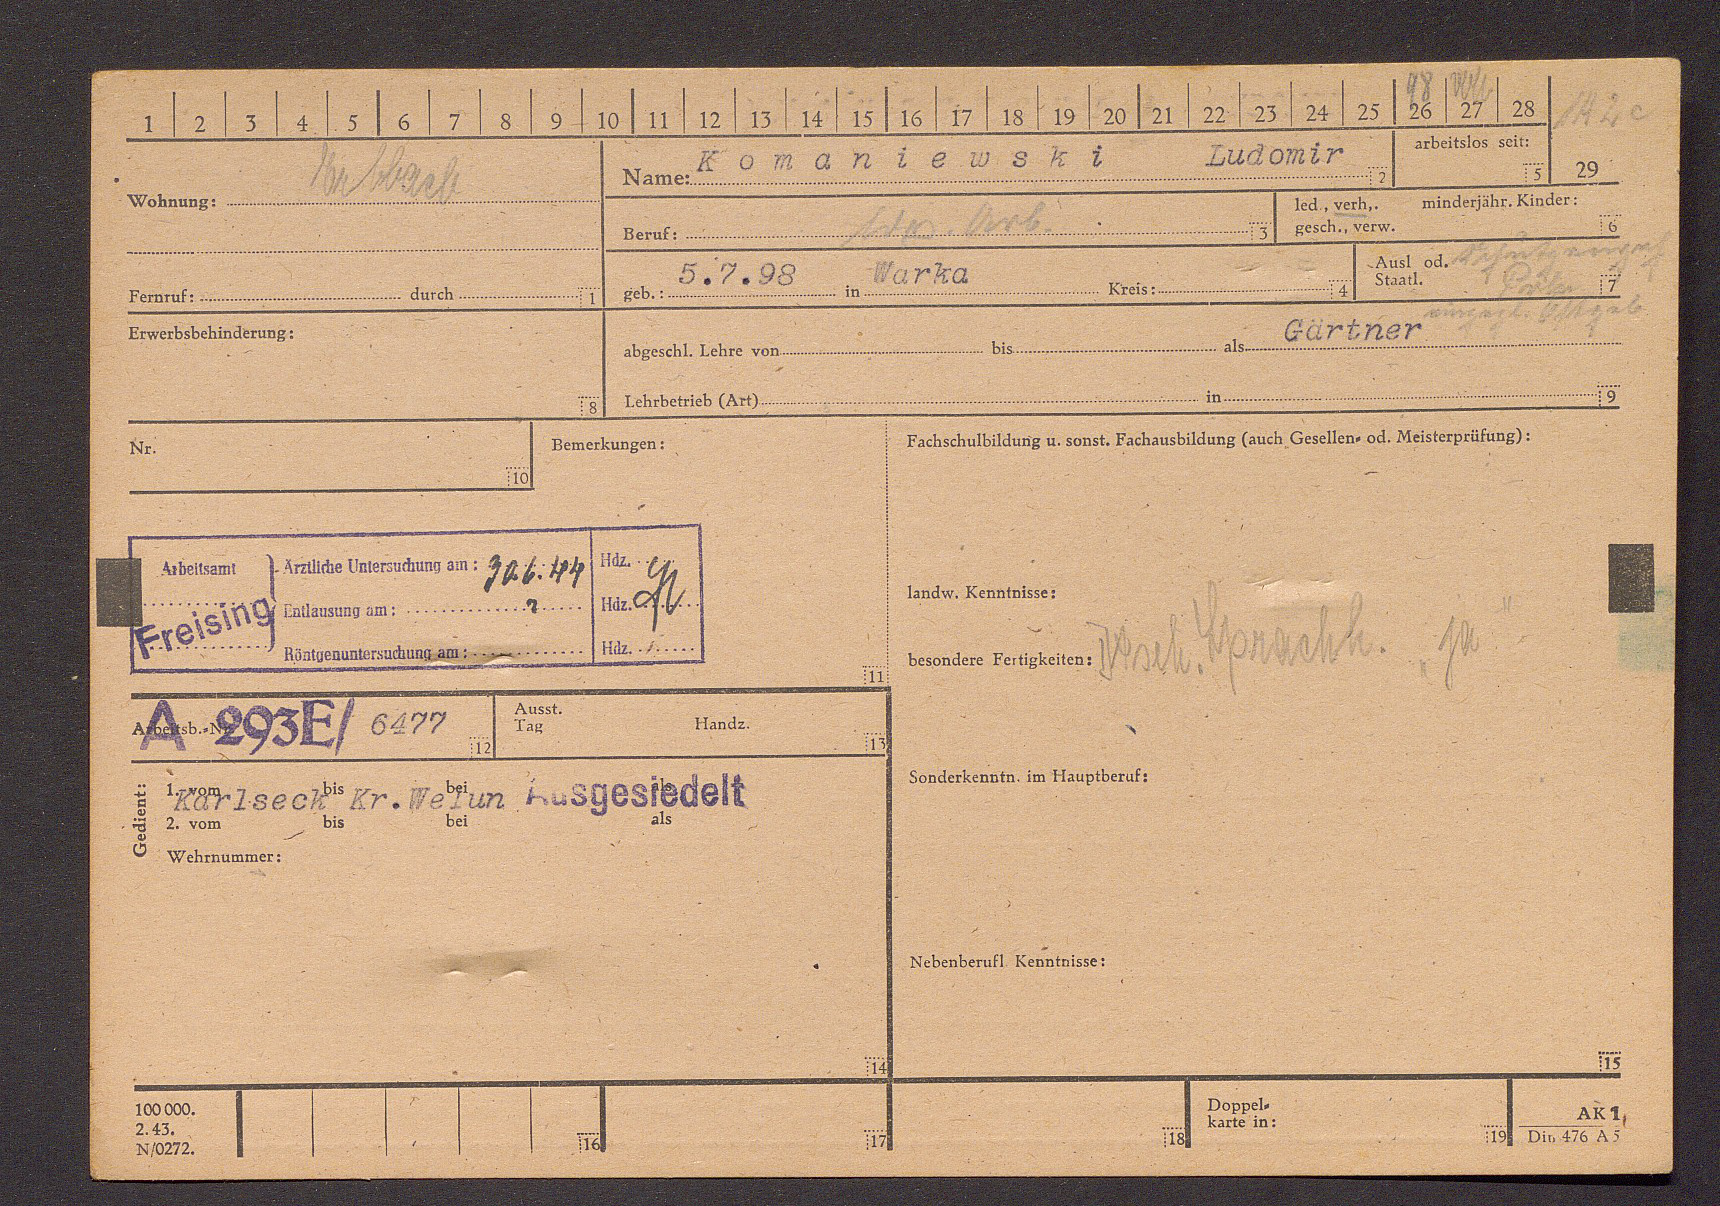 48
1 2 3 4 5 6 7 8 9 10 11 12 13 14 15 16 17 18 19 20 21 22 23 24 25 26 27 28
29
Wohnung:
Name: Komaniewski Ludomir 2
arbeitslos seit: 5
Beruf: Arb. 3
led., verh,. minderjähr. Kinder:
gesch., verw. 6
Fernruf: durch 1
geb.: 5.7.98 in Warka Kreis: 4
Ausl od.
Staatl. 7
Erwerbsbehinderung: 8
Gärtner
abgeschl. Lehre von bis als
Lehrbetrieb (Art) in 9
Nr. 10
Bemerkungen:
Fachschulbildung u. sonst. Fachausbildung (auch Gesellen- od. Meisterprüfung):
Arbeitsamt Ärztliche Untersuchung am: 30.6.44 Hdz.
Freising Entlausung am: Hdz.
Röntgenuntersuchung am: Hdz.
11
landw. Kenntnisse:
besondere Fertigkeiten: Dtsch. Sprachk. „ja"
Arbeitsb.-Nr. A 293E/ 6477 12
Ausst.
Tag Handz. 13
Sonderkenntn. im Hauptberuf:
Gedient:
1. vom bis bei als
Karlseck Kr. Welun Ausgesiedelt
2. vom bis bei als
Wehrnummer:
14
Nebenberufl. Kenntnisse:
15
100 000.
2. 43.
N/0272.
16 17 18
Doppel-
karte in: 19
AK 1
Din 476 A 5